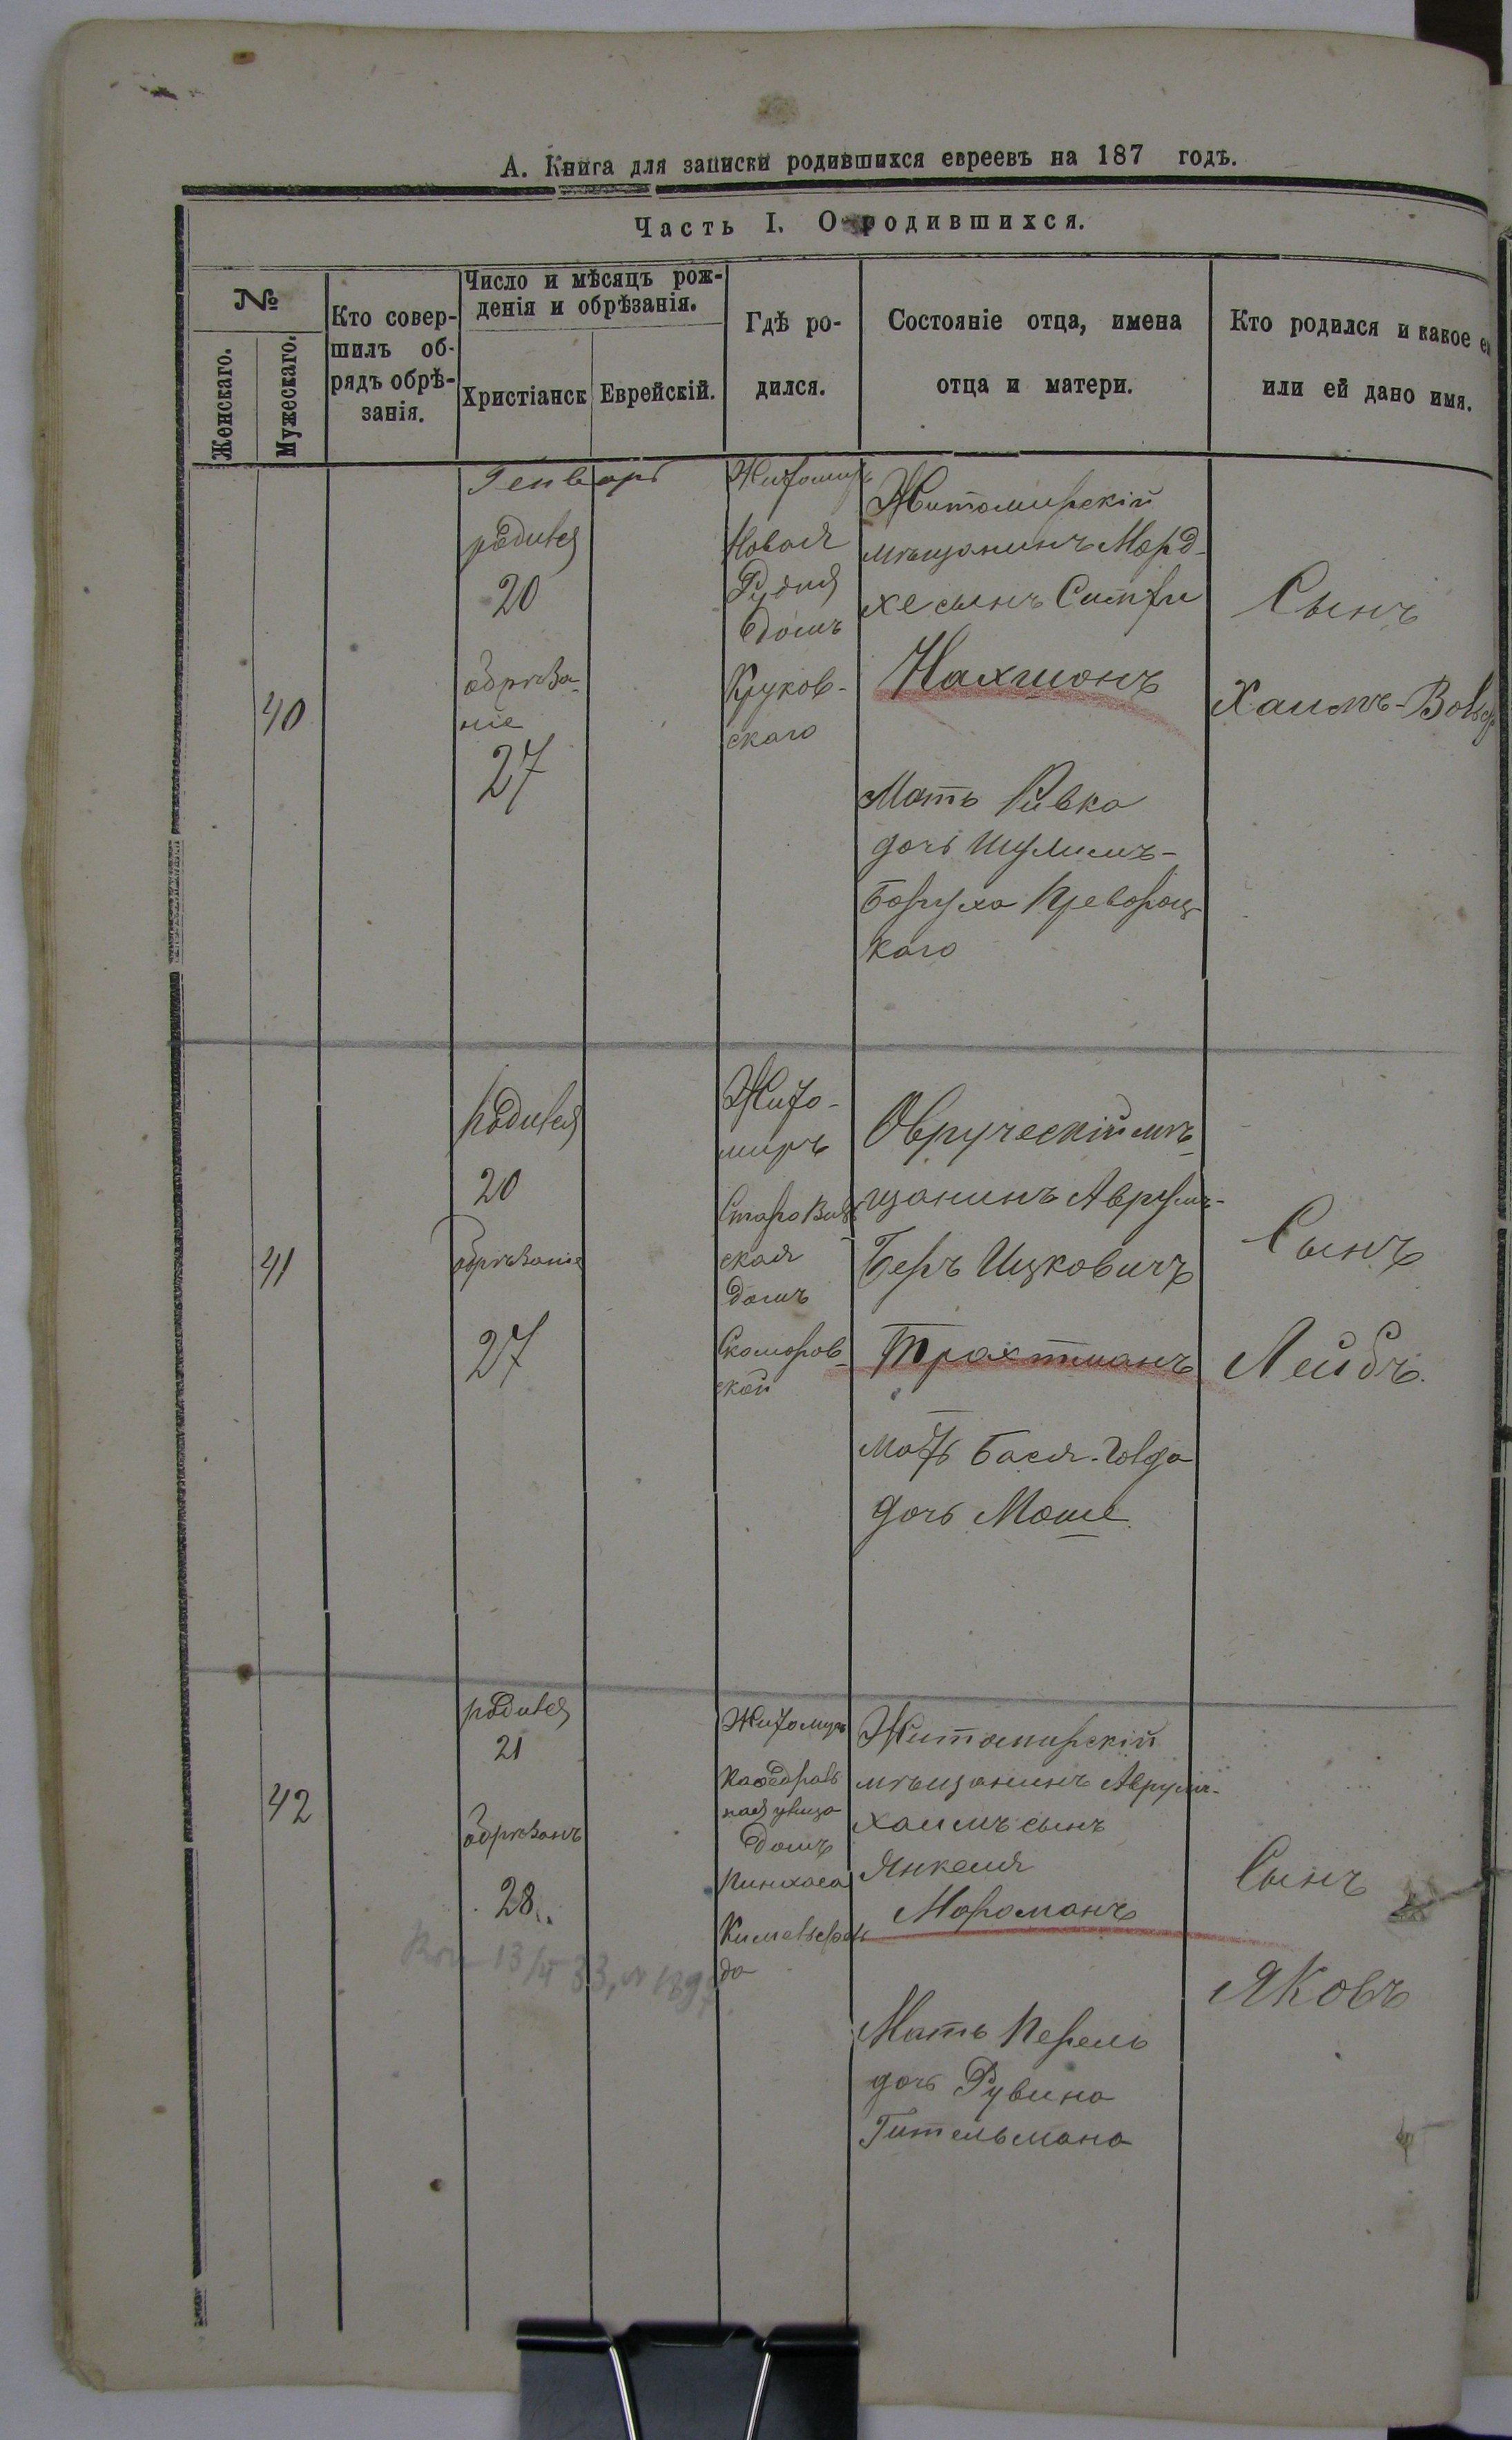 А. Книга для записки родившихся евреевъ на 187 годъ.
Часть I. О родившихся.
№
Женскаго.
Мужескаго.
Кто совер-
шилъ об-
рядъ обрѣ-
занія.
Число и мѣсяцъ рож-
денія и обрѣзанія.
Христіанск
Еврейскій.
Гдѣ ро-
дился.
Состояніе отца, имена
отца и матери.
Кто родился и какое ем
или ей дано имя.
40
Генварь
родился
20
обрѣза-
ніе
27
Житомиръ
Новая
Рудня
домъ
Круков-
скаго
Житомирскій
мѣщанинъ Морд-
хе сынъ
Нахшонъ
Мать Ривка
дочь Шулимъ-
Боруха
каго
Сынъ
Хаимъ-Вольф
41
родился
20
обрѣзаніе
27
Жито-
миръ
Старо Виль
ская
домъ
Скоморов-
ской
Овруческій мѣ-
щанинъ Аврумъ-
Беръ Ицковичъ
Трахтманъ
мать Бася-Голда
дочь Моше
Сынъ
Лейбъ.
42
родился
21
обрѣзанъ
28
13/II 33, 189
Житомиръ
Каѳедраль
ная улица
домъ
Пинхаса
Кимельфель
да
Житомирскій
мѣщанинъ Аврумъ-
Хаимъ сынъ
Янкеля
Мороманъ
Мать Перель
дочь Рувина
Гительмана
Сынъ
Яковъ